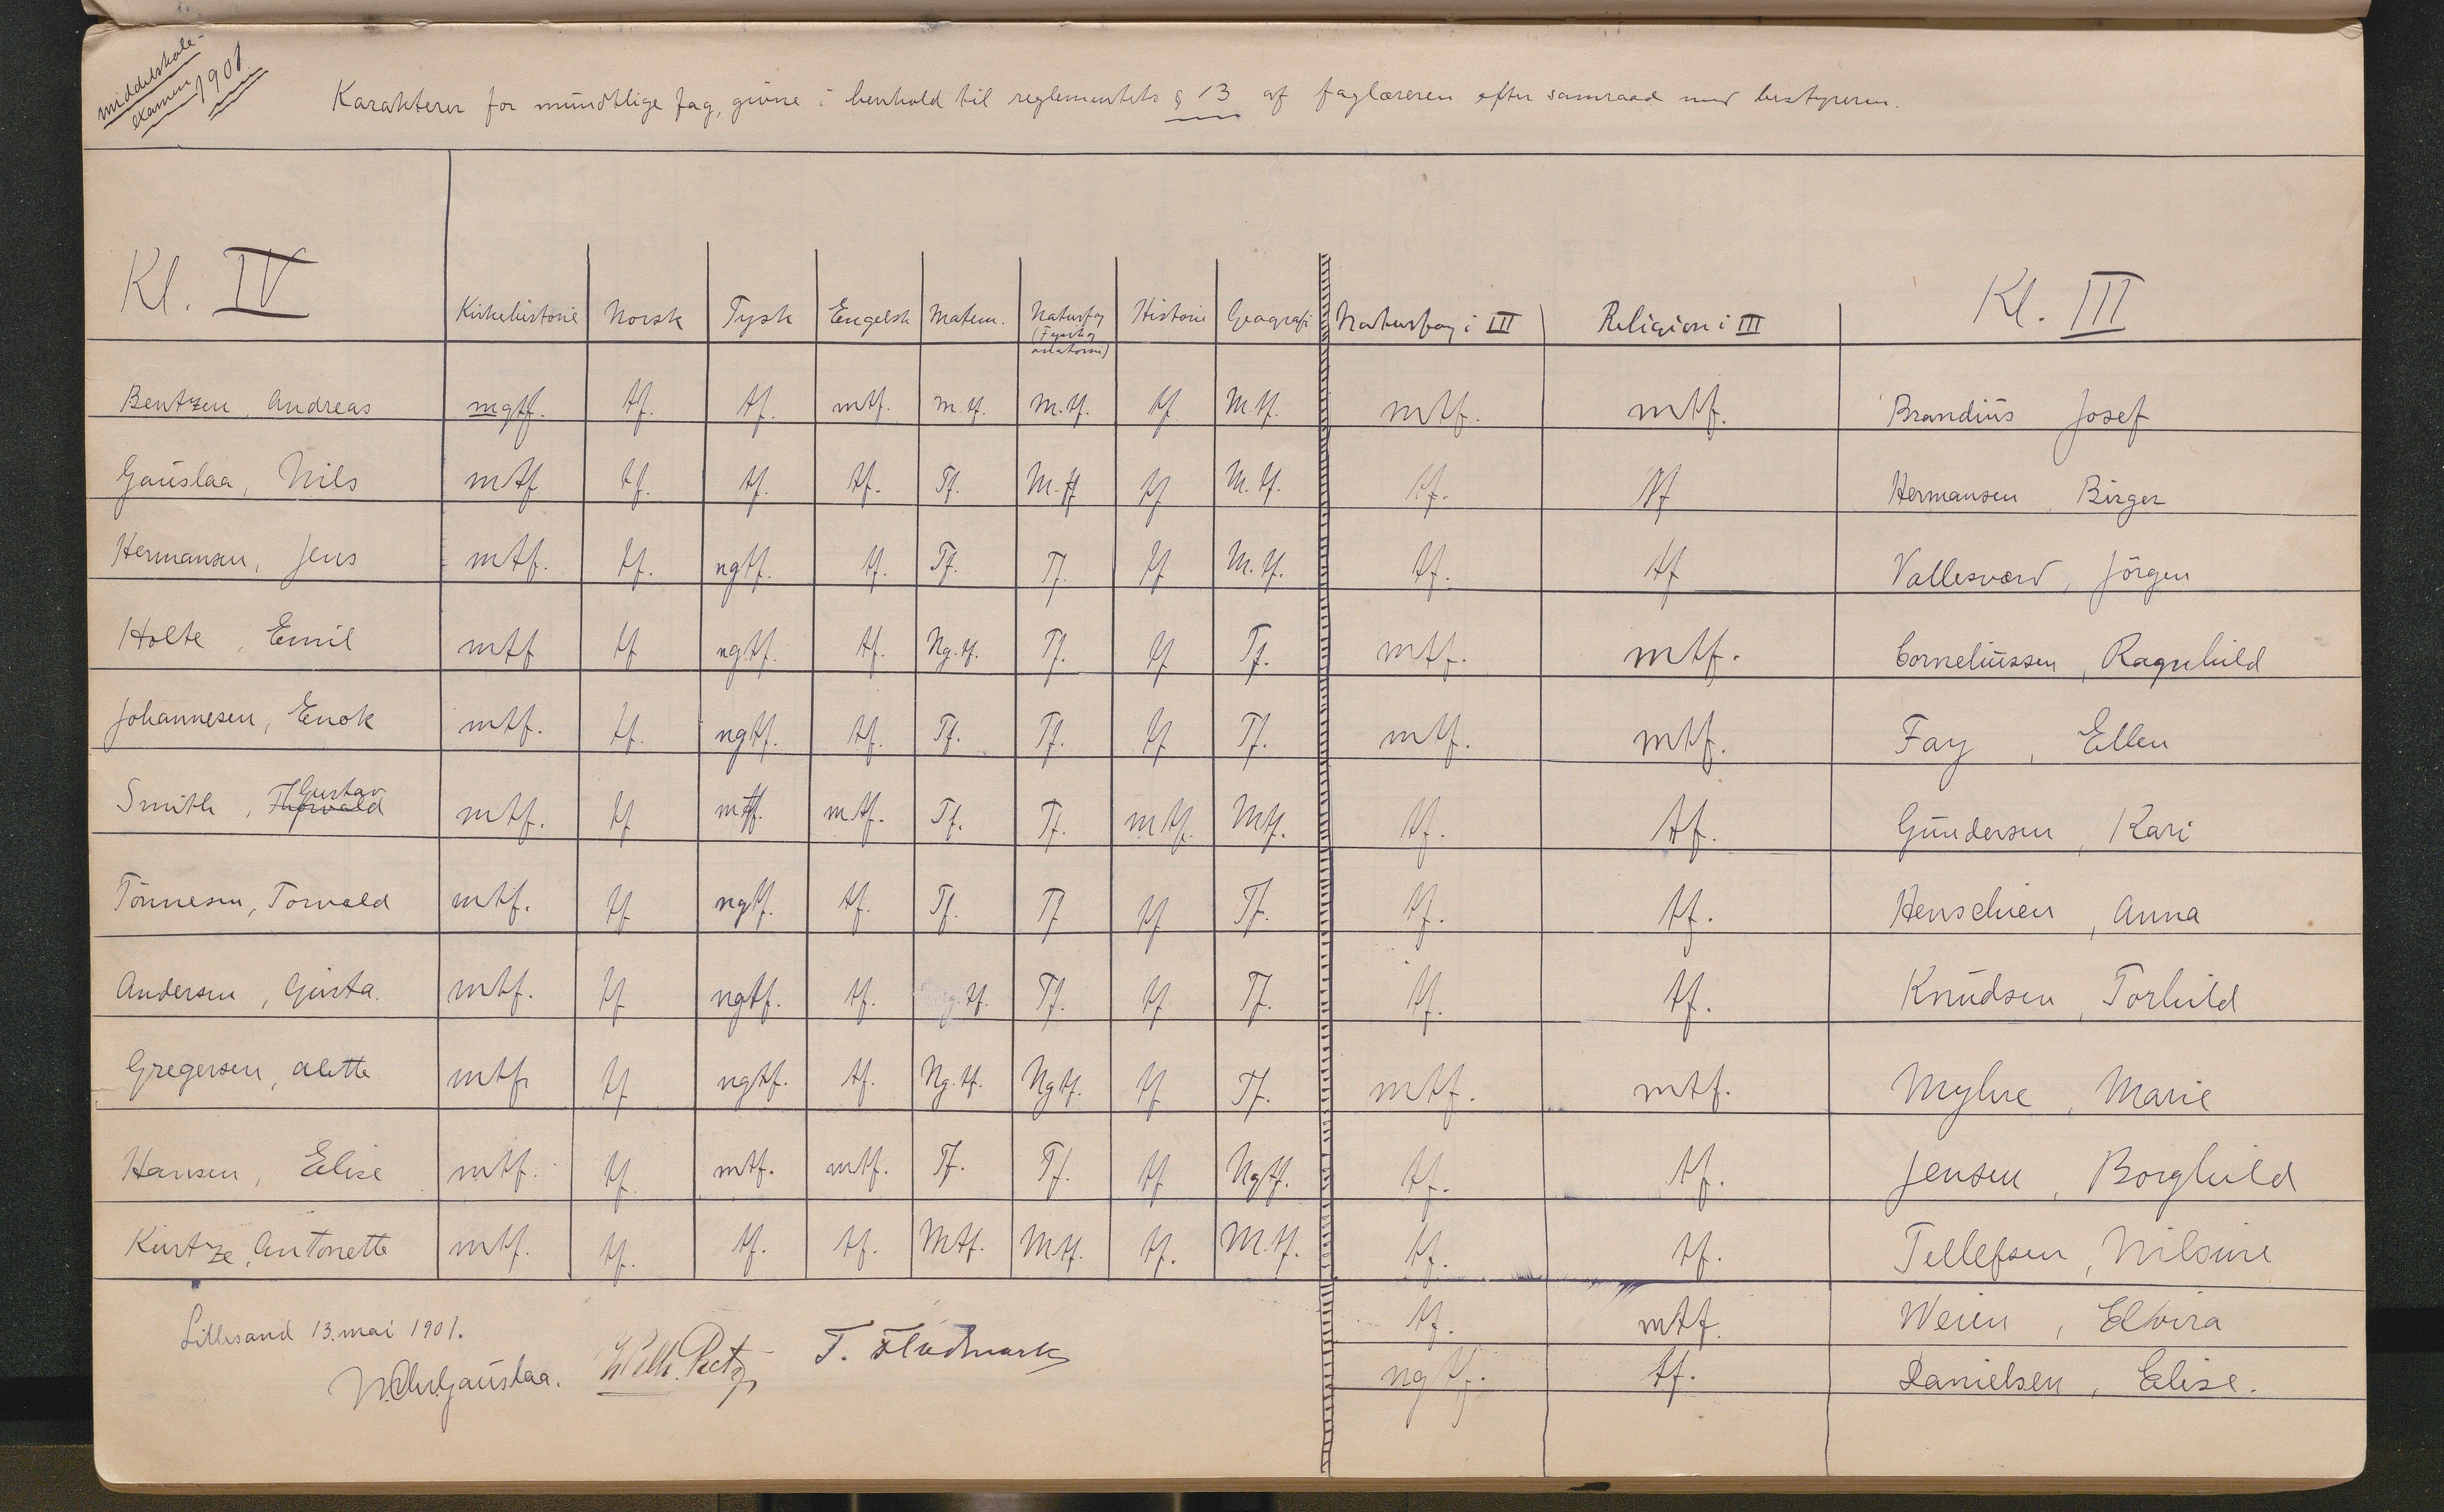 middelskole-
examen 1901
Karakterer for mündtlige fag, givne i henhold til reglementets § 13 af faglæreren efter samraad med bestyreren.
Kl. IV Kirkehistorie Norsk Tysk Engelsk Matem. Naturfag (Fysik og anatomi) Historie Geografi Naturfag i III Religion i III Kl. III
Bentzen, Andreas mgtf. tf. tf. mtf. m.tf. M.tf. tf M.tf. mtf. mtf. Brandiüs Josef
Gaüslaa, Nils mtf tf. tf. tf. Tf. M.tf tf M.tf. tf. tf Hermansen, Birger
Hermansen, Jens mtf. tf. ngtf. tf. Tf. Tf. tf M.tf. tf. tf Vallesværd, Jörgen
Holte, Emil mtf tf ngtf. tf. Ng.tf. Tf. tf Tf. mtf. mtf. Corneliüssen, Ragnhild
Johannesen, Enok mtf. tf. ngtf. tf. Tf. Tf. tf Tf. mtf. mtf. Fay, Ellen
Smith, Thorvald Gustav mtf. tf mtf. mtf. Tf. Tf. mtf. Mtf. tf. tf. Gündersen, Kari
Tönnesen, Torvald mtf. tf ngtf. tf. Tf. Tf tf Tf. tf. tf. Henschien, Anna
Andersen, Güsta. mtf. tf ngtf. tf. g.tf. Tf. tf Tf. tf. tf. Knüdsen, Torhild
Gregersen, Alette mtf. tf ngtf. tf. Ng.tf. Ngtf. tf Tf. mtf. mtf. Myhre, Marie
Hansen, Elise mtf. tf. mtf. mtf. Tf. Tf. tf Ngtf. tf. tf. Jensen, Borghild
Kürtze, Antonette mtf. tf. tf. tf. Mtf. Mtf. tf. M.tf. tf. tf. Tellefsen, Nilsine
tf. mtf. Weien, Elvira
ngtf. tf. Danielsen, Elise.
Lillesand 13. mai 1901.
N. Chr. Gaüslaa. T. Flødmark